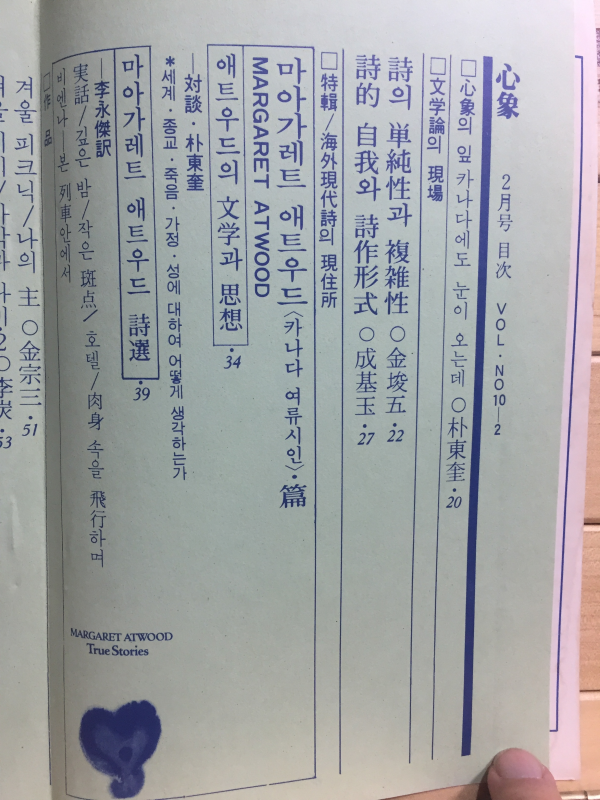 心象 2月号 目次 VOL・NO10—2
□心象의 잎 카나다에도 눈이 오는데 ○朴東奎・20
□文学論의 現場
詩의 単純性과 複雑性 ○金埈五・22
詩的 自我와 詩作形式 ○成基玉・27
□特輯/海外現代詩의 現住所
마아가레트 애트우드〈카나다 여류시인〉・篇
MARGARET ATWOOD
애트우드의 文学과 思想・34
—対談・朴東奎
*세계・종교・죽음・가정・성에 대하여 어떻게 생각하는가
마아가레트 애트우드 詩選・39
—李永傑訳
実話/깊은 밤/작은 斑点/호텔/肉身 속을 飛行하며
비엔나 본 列車안에서
□作品
겨울 피크닉/나의 主 ○金宗三・51
2○李炭・53
MARGARET ATWOOD
True Stories